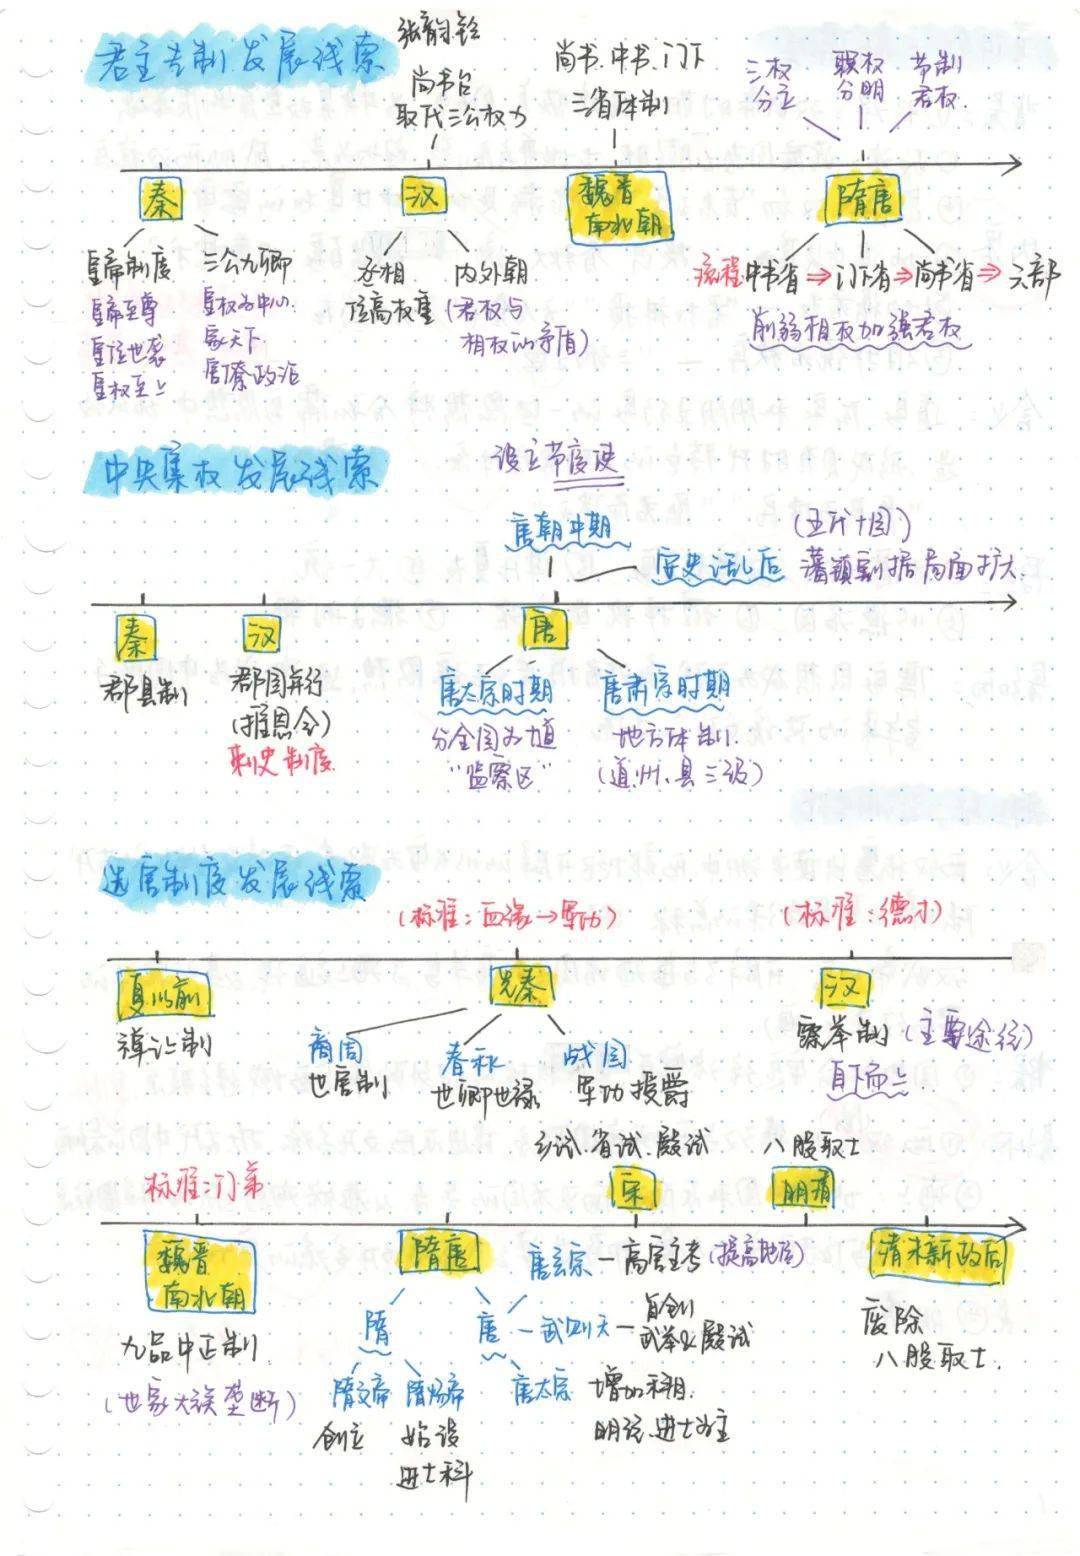 君主专制发展线索
张韵铃
尚书台
取代三公权力
尚书.中书.门下
三省体制
三权
分立
职权
分明
节制
君权.
秦
汉
魏晋
南北朝
隋唐
皇帝制度
皇帝至尊
皇位世袭
皇权至上
三公九卿
皇权为中心.
家天下
官僚政治
丞相
位高权重
内外朝
(君权与
相权的矛盾)
流程 中书省⇒门下省⇒尚书省⇒六部
削弱相权加强君权
中央集权发展线索
设立节度使
唐朝中期
安史之乱后
(五代十国)
藩镇割据局面扩大.
秦
汉
唐
郡县制
郡国并行
(推恩令)
刺史制度.
唐太宗时期
分全国为十道
"监察区"
唐肃宗时期
地方体制.
(道.州、县三级)
选官制度发展线索
(标准:血缘→军功)
(标准:德才)
夏以前
先秦
汉
禅让制
商周
世官制
春秋
世卿世禄
战国
军功授爵
察举制 (主要途径)
自下而上
乡试.省试.殿试
八股取士
标准:门第
宋
明清
魏晋
南北朝
隋唐
清末新政后
九品中正制.
(世家大族垄断)
隋
隋文帝
创立
隋炀帝
始设
进士科
唐
唐玄宗—高官主考(提高地位)
—武则天—首创
武举、殿试
唐太宗
增加科目.
明经.进士为主
废除
八股取士.